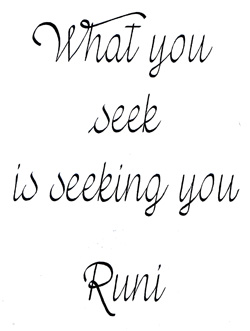 What you
seek
is seeking you
Runi